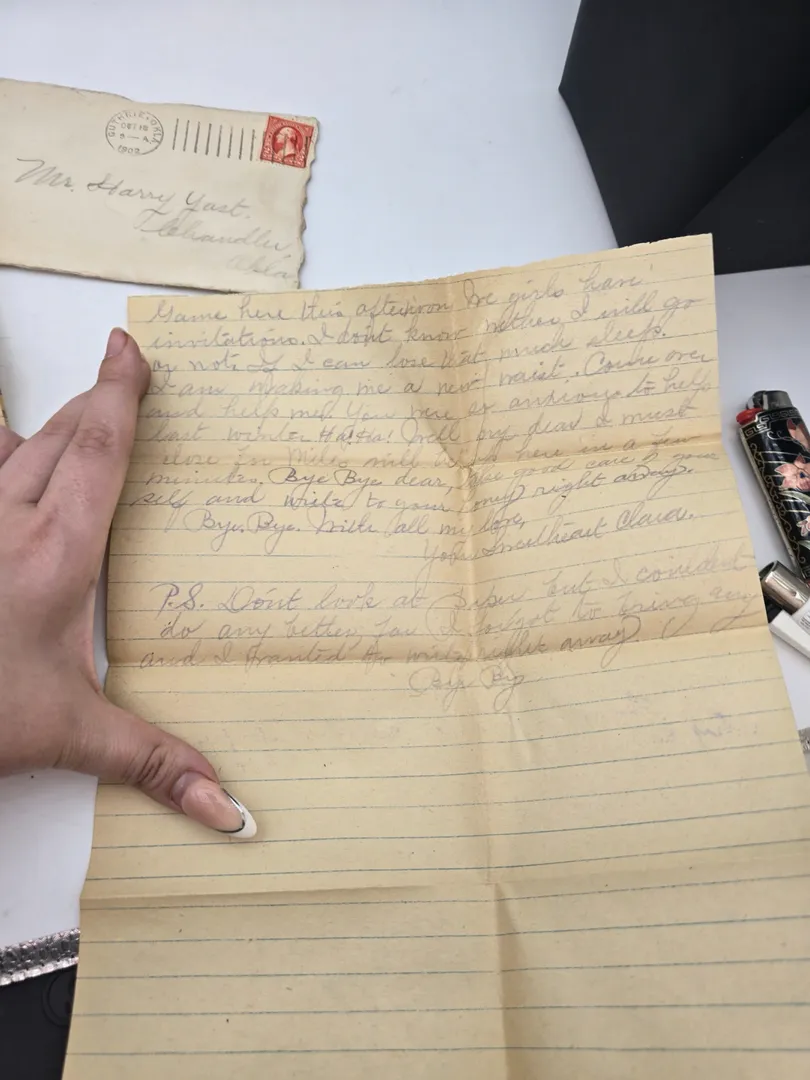 GUTHRIE, OKLA.
OCT 18
5 — A
1909
Mr. Harry Yast.
Chandler,
Okla
Game here this afternoon. We girls have
invitations. I don't know wether I will go
or not. If I can lose that much sleep.
I am making me a new waist. Come over
and help me. You were so anxious to help
last winter Ha! Ha! Well my dear I must
close for will be here in a few
minutes. Bye Bye dear, take good care of your
self and write to your only right away.
Bye. Bye. With all my love,
Your Sweetheart Clara.
P.S. Don't look at paper but I couldn't
do any better, for I forgot to bring any
and I wanted to write right away.
Bye Bye